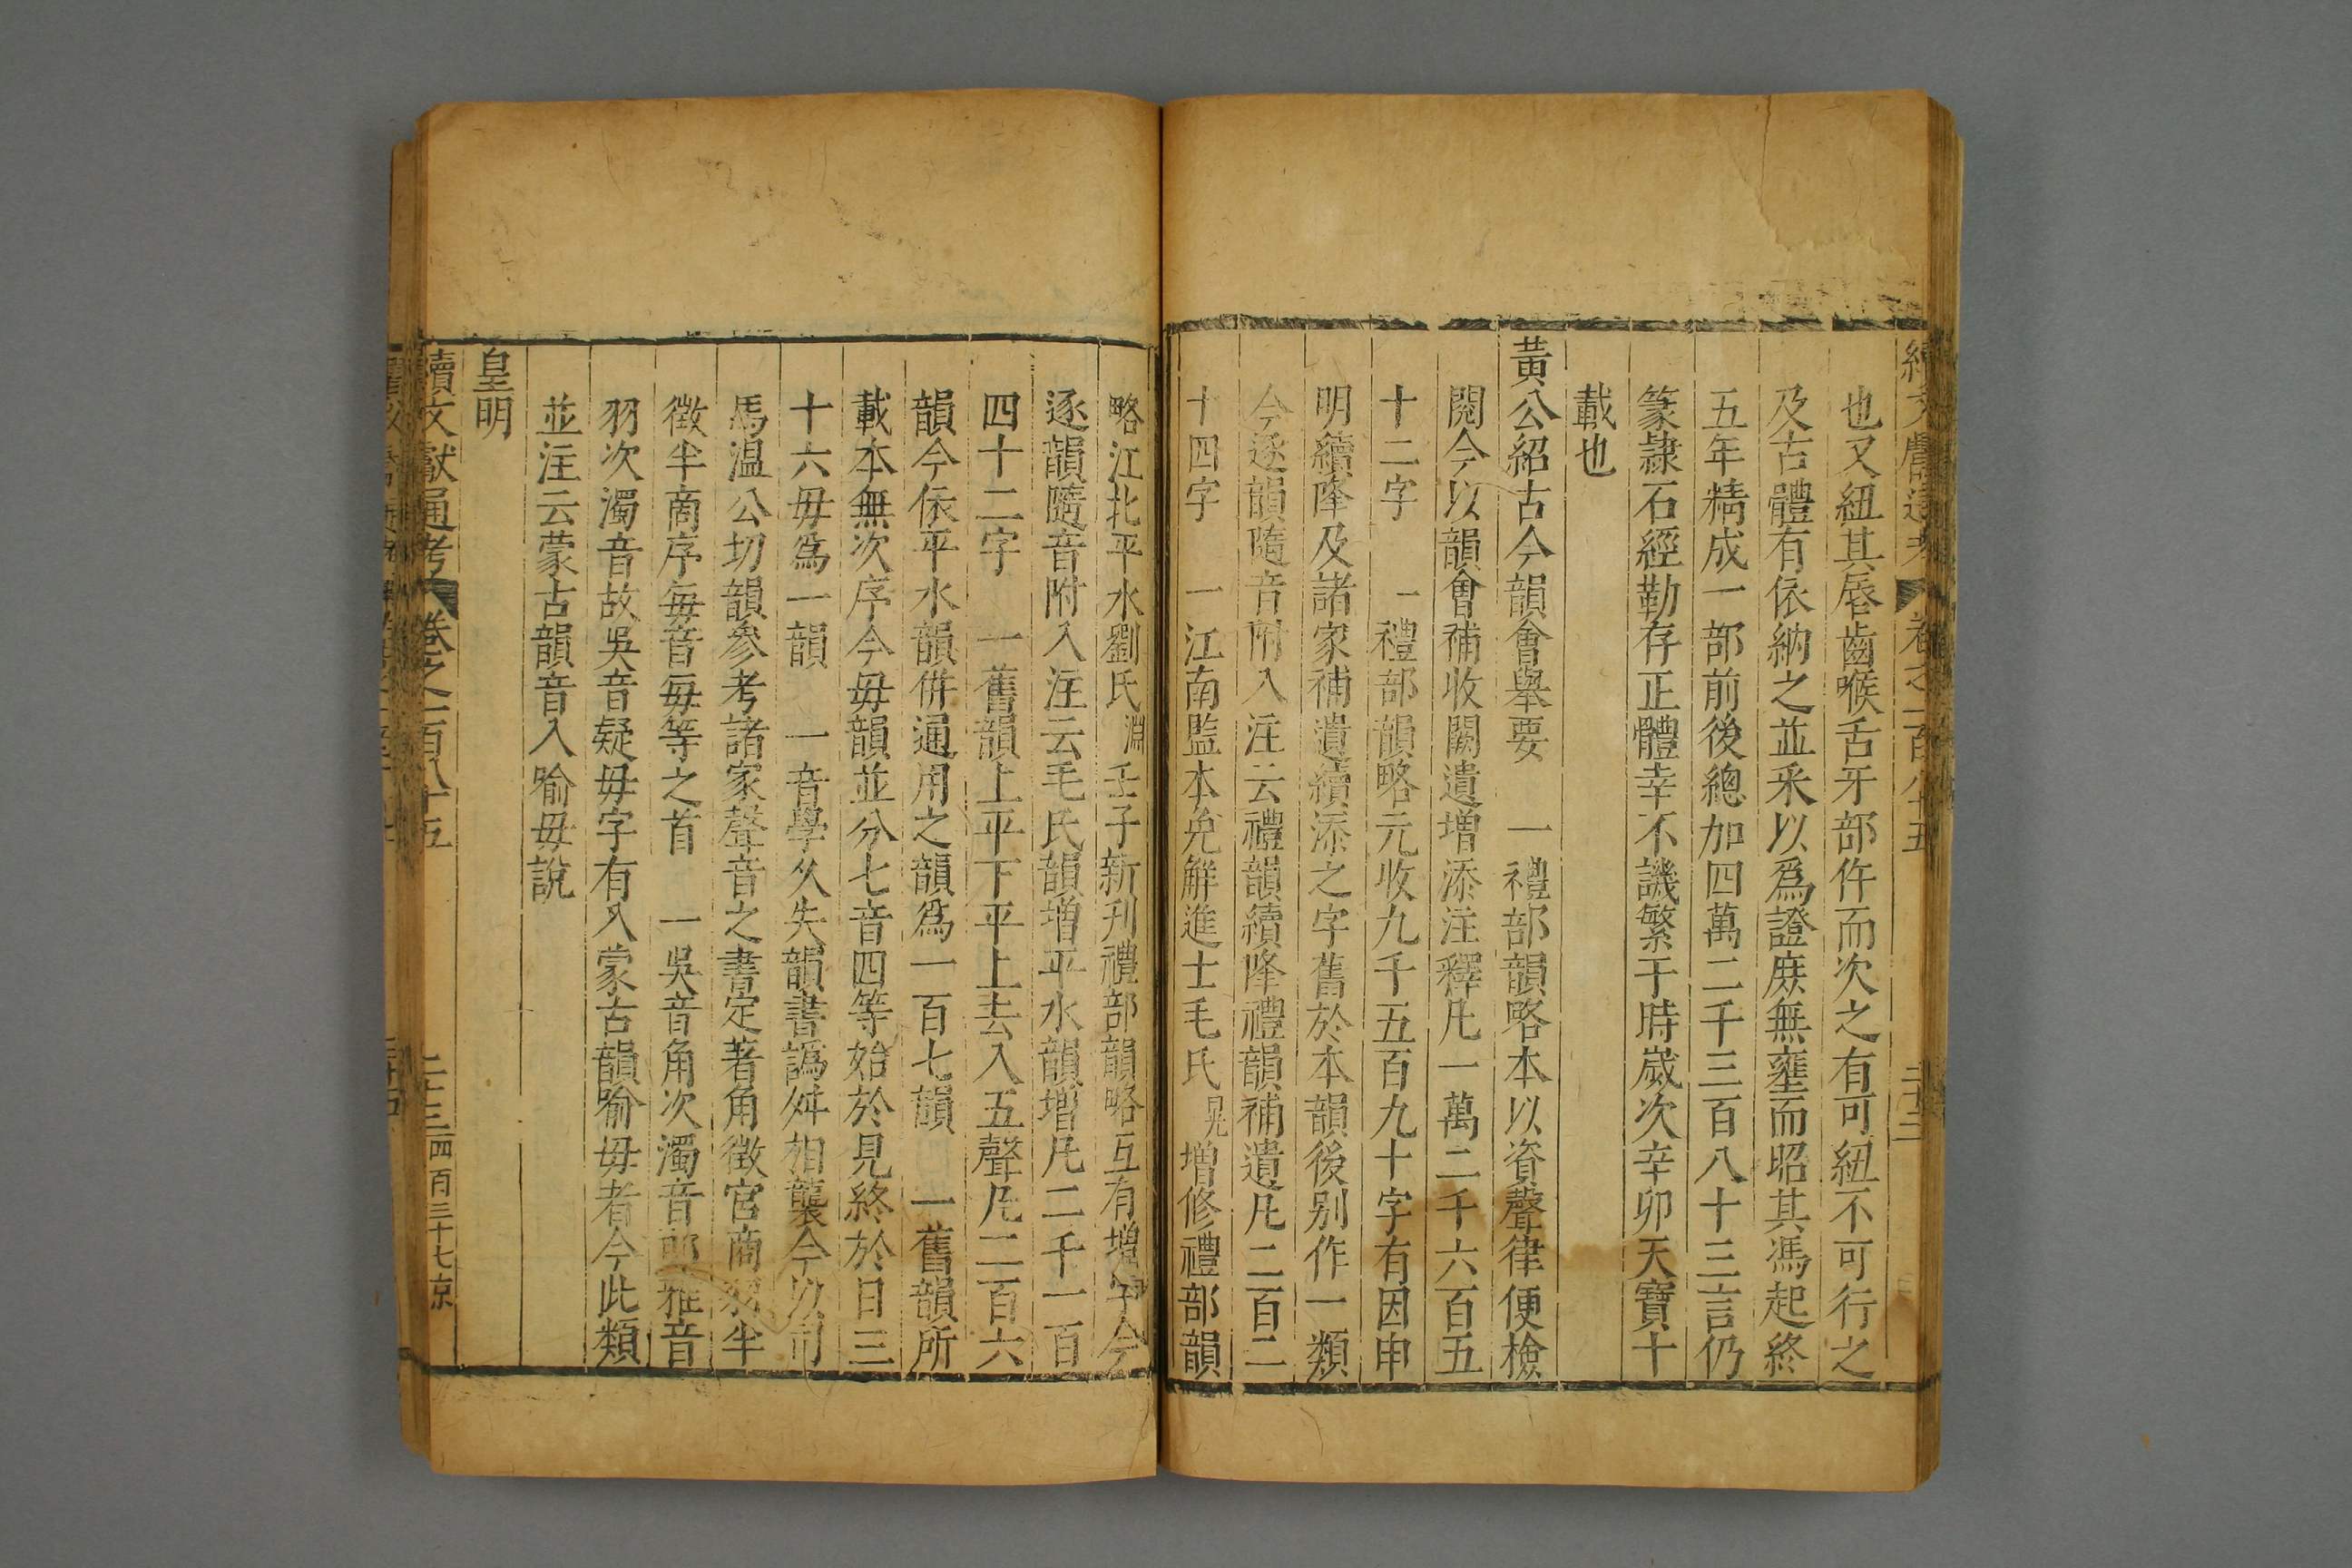 續文獻通考 卷之一百八十五 二十三
也又紐其唇齒喉舌牙部仵而次之有可紐不可行之
及古體有依納之並采以爲證庶無壅而昭其馮起終
五年精成一部前後總加四萬二千三百八十三言仍
篆隷石經勒存正體幸不譏繁于時歲次辛卯天寶十
載也
黃公紹古今韻會舉要 一禮部韻略本以資聲律便檢
閱今以韻會補收闕遺增添注釋凡一萬二千六百五
十二字 一禮部韻略元收九千五百九十字有因申
明續降及諸家補遺續添之字舊於本韻後别作一類
今逐韻隨音附入注云禮韻續降禮韻補遺凡二百二
十四字 一江南監本免解進士毛氏晃增修禮部韻
略江北平水劉氏淵壬子新刋禮部韻略互有增字今
逐韻隨音附入注云毛氏韻增平水韻增凡二千一百
四十二字 一舊韻上平下平上去入五聲凡二百六
韻今依平水韻併通用之韻爲一百七韻 一舊韻所
載本無次序今毋韻並分七音四等始於見終於日三
十六毋爲一韻 一音學久失韻書譌舛相襲今以司
馬温公切韻參考諸家聲音之書定著角徵宫商羽半
徵半商序每音每等之首 一吳音角次濁音卽雅音
羽次濁音故吳音疑毋字有入蒙古韻喻毋者今此類
並注云蒙古韻音入喻毋說
皇明
續文獻通考 卷之一百八十五 二十三 四百三十七京